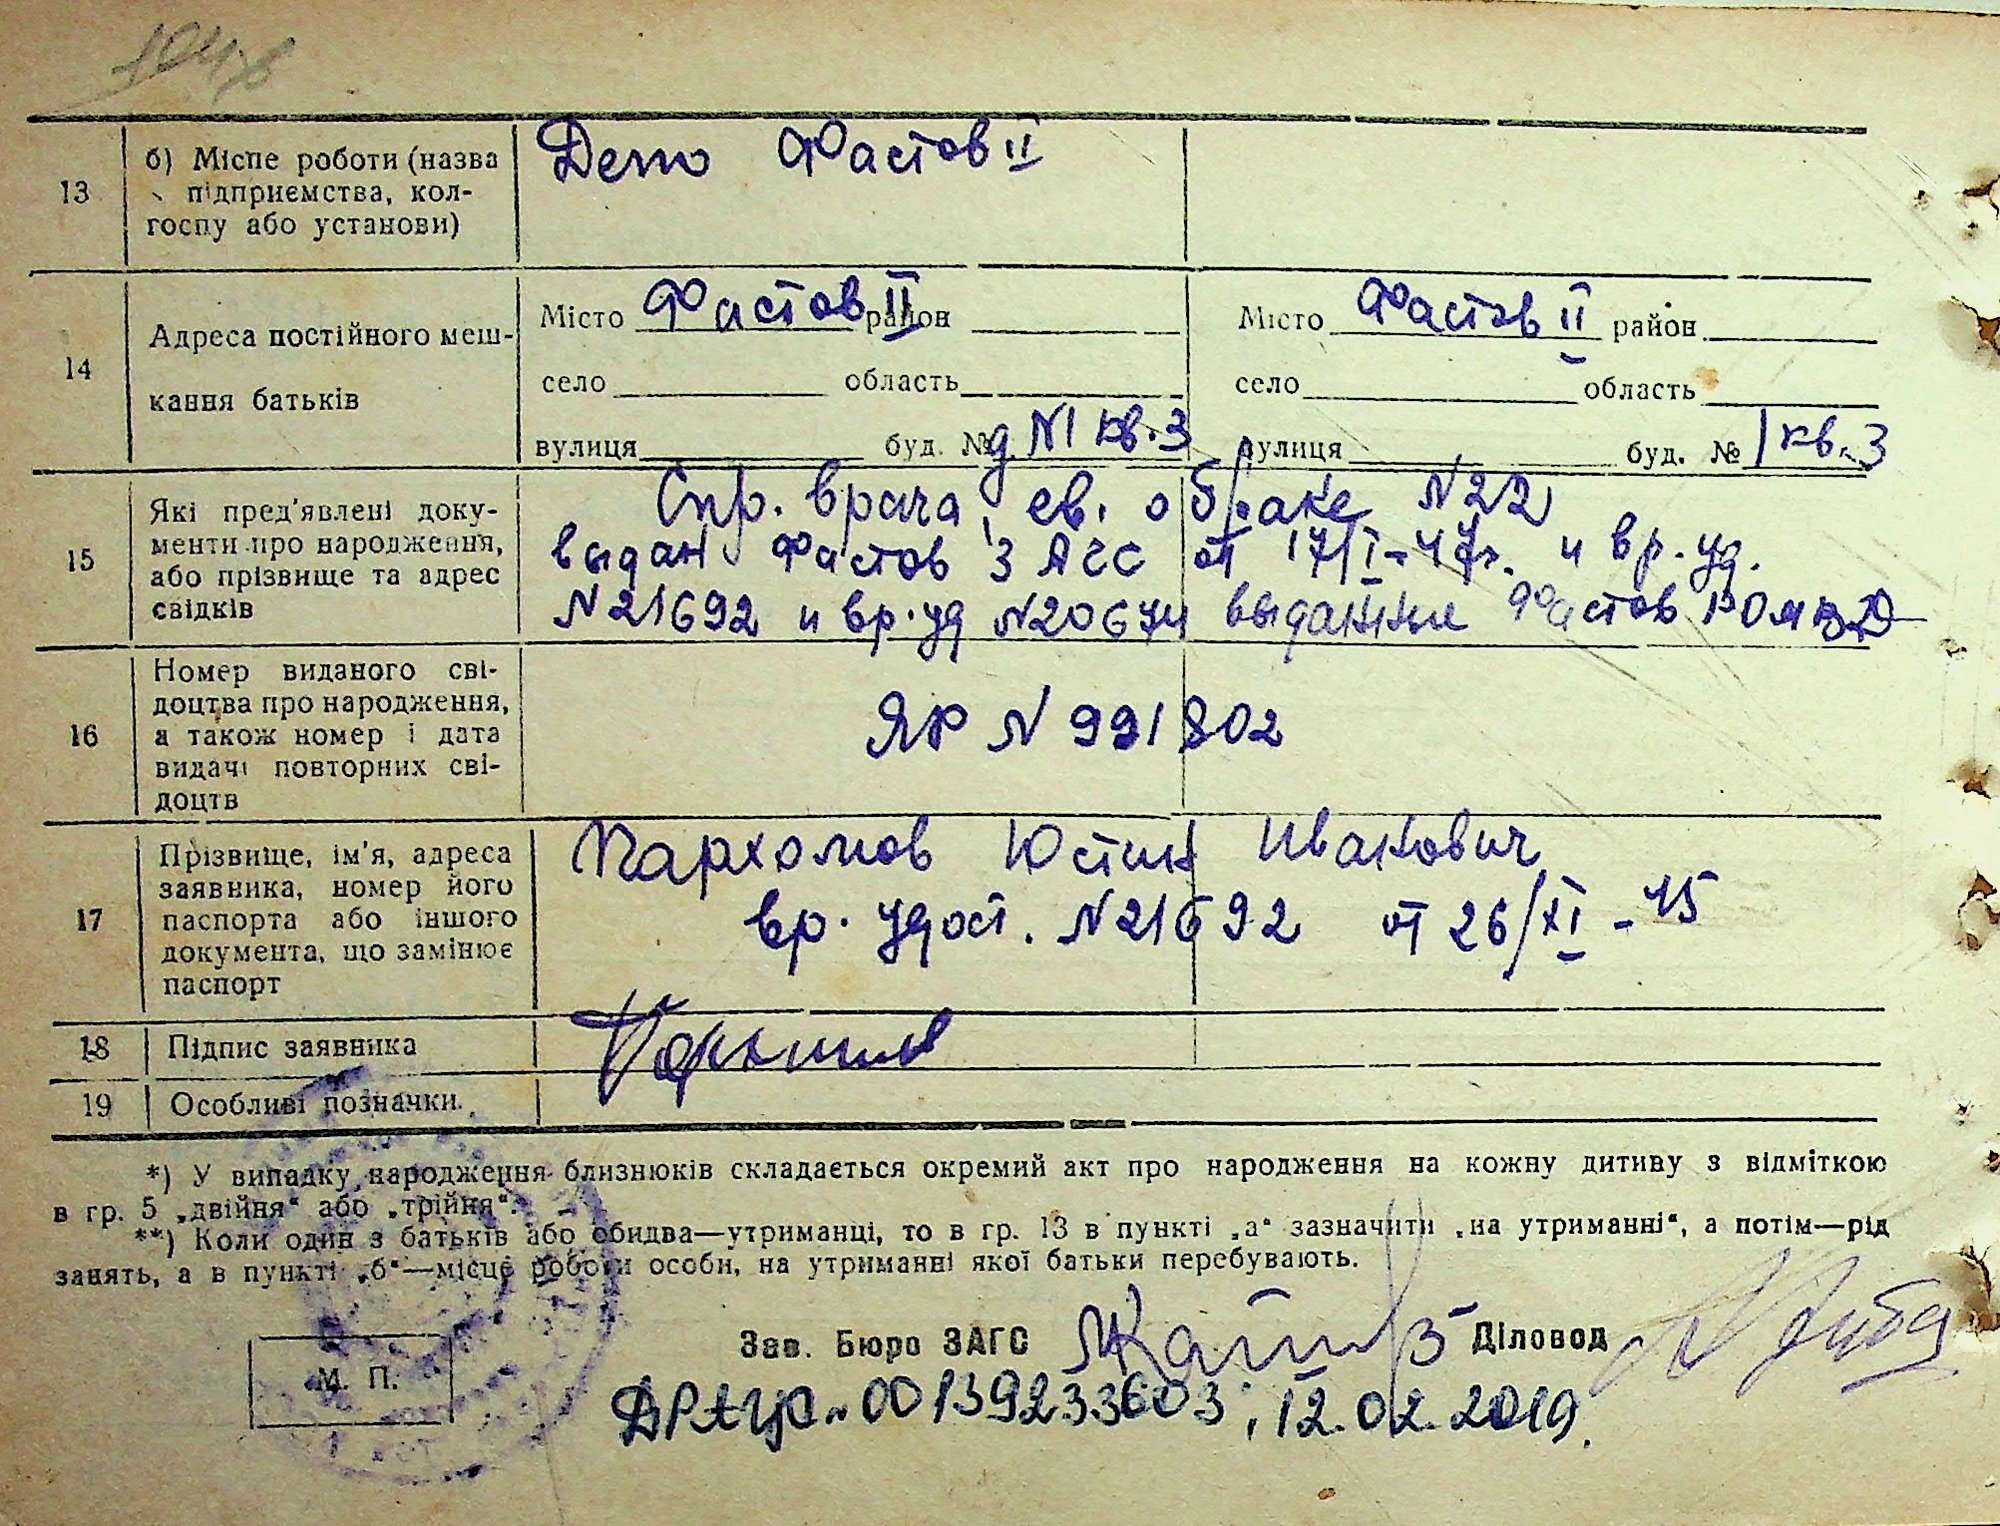 13
б) Місце роботи (назва підприємства, колгоспу або установи)
Депо Фастов II
14
Адреса постійного мешкання батьків
Місто Фастов II район
село область
вулиця буд. № д N1 кв. 3
Місто Фастов II район
село область
вулиця буд. № 1 кв. 3
15
Які пред'явлені документи про народження, або прізвище та адрес свідків
Спр. врача, св. о браке N22
выдан Фастов ЗАГС от 17/I-47г. и вр. уд.
N21692 и вр. уд N20674 выданные Фастов РОМВД
16
Номер виданого свідоцтва про народження, а також номер і дата видачі повторних свідоцтв
ЯР N 991802
17
Прізвище, ім'я, адреса заявника, номер його паспорта або іншого документа, що замінює паспорт
Пархомов Юстин Иванович
вр. удост. N21692 от 26/XI-45
18
Підпис заявника
19
Особливі позначки.
*) У випадку народження близнюків складається окремий акт про народження на кожну дитину з відміткою
в гр. 5 „двійня“ або „трійня“.
**) Коли один з батьків або обидва—утриманці, то в гр. 13 в пункті „а“ зазначити „на утриманні“, а потім—рід
занять, а в пункті „б“—місце роботи особи, на утриманні якої батьки перебувають.
Зав. Бюро ЗАГС Діловод
М. П.
ДРАЦС N 00139233603; 12.02.2019.